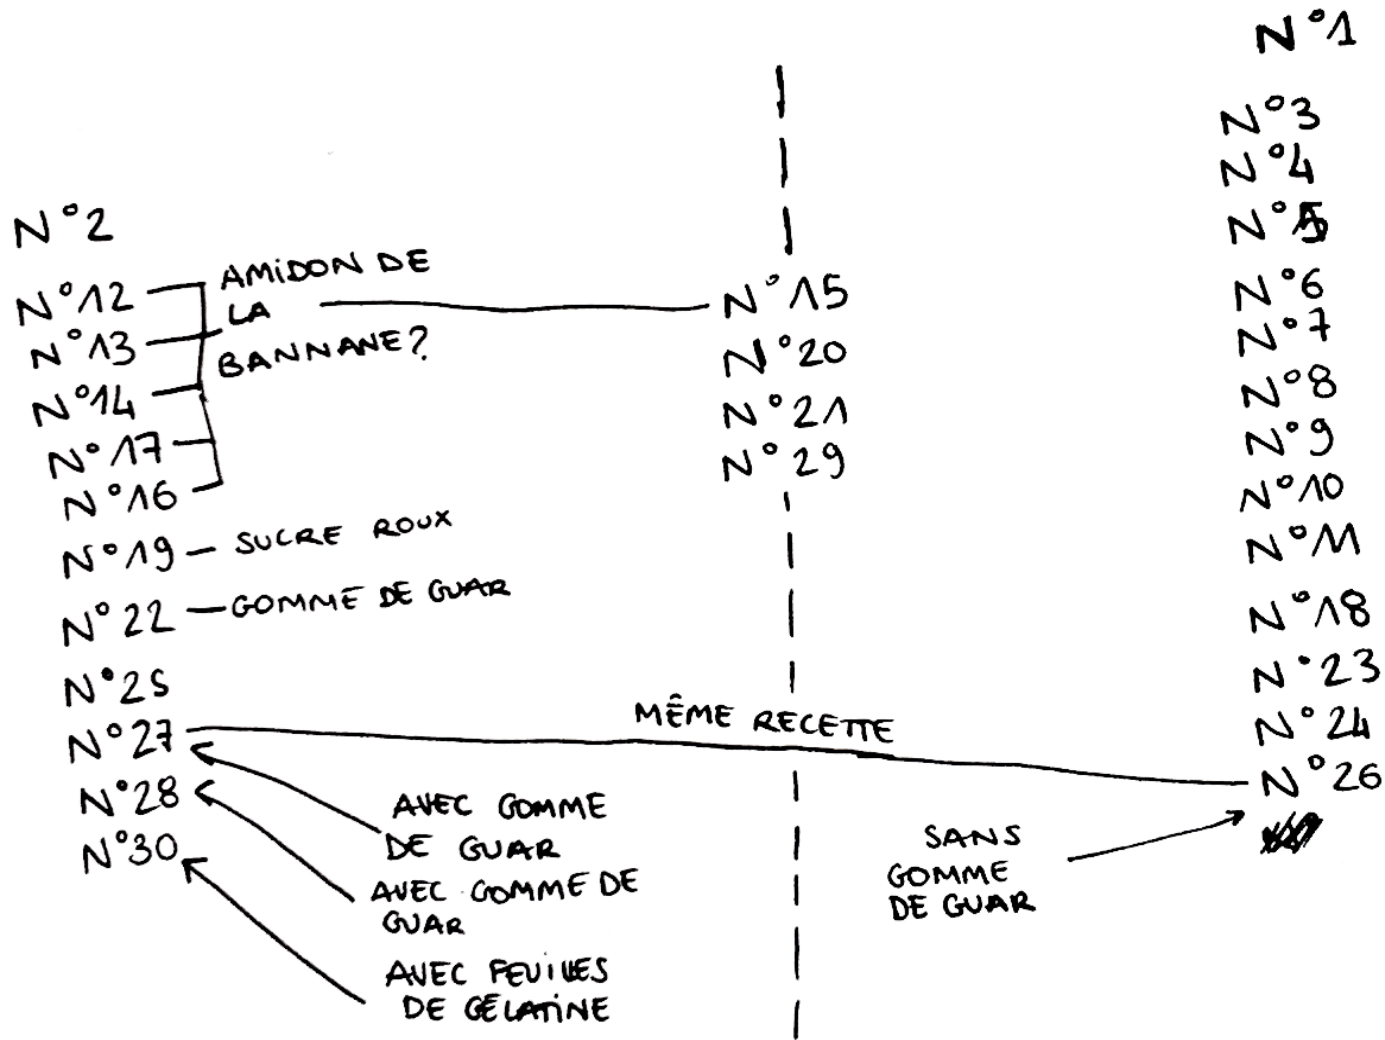 N°2
N°12
N°13
N°14
N°17
N°16
N°19 — SUCRE ROUX
N°22 — GOMME DE GUAR
N°25
N°27
N°28
N°30
AMIDON DE
LA
BANNANE?
AVEC GOMME
DE GUAR
AVEC GOMME DE
GUAR
AVEC FEUILLES
DE GÉLATINE
N°15
N°20
N°21
N°29
MÊME RECETTE
N°1
N°3
N°4
N°5
N°6
N°7
N°8
N°9
N°10
N°11
N°18
N°23
N°24
N°26
SANS
GOMME
DE GUAR